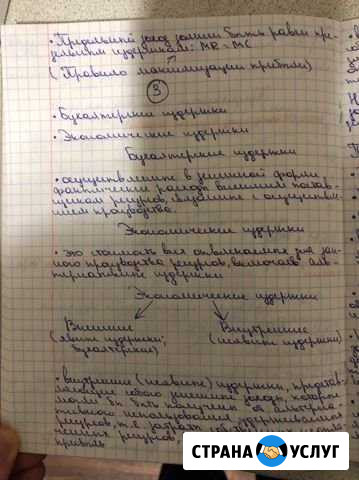 • Предельный доход должен быть равен пре-
дельным издержкам: MR = MC
(Правило максимизации прибыли)
3
• Бухгалтерские издержки
• Экономические издержки
Бухгалтерские издержки
• осуществление в денежной форме
фактические расходы внешним постав-
щикам ресурсов, связанные с осуществле-
нием производства.
Экономические издержки
• это стоимость всех отвлекаемых для дан-
ного производства ресурсов, включая аль-
тернативные издержки
Экономические издержки
Внешние Внутренние
(явные издержки; (неявные издержки)
бухгалтерские)
• внутренние (неявные) издержки, представ-
ляющие собой денежный доход, который
могли бы быть получен от альтерна-
тивного использования
ресурсов, т.е. затрат
ресурсов,
прибыль
СТРАНА УСЛУГ